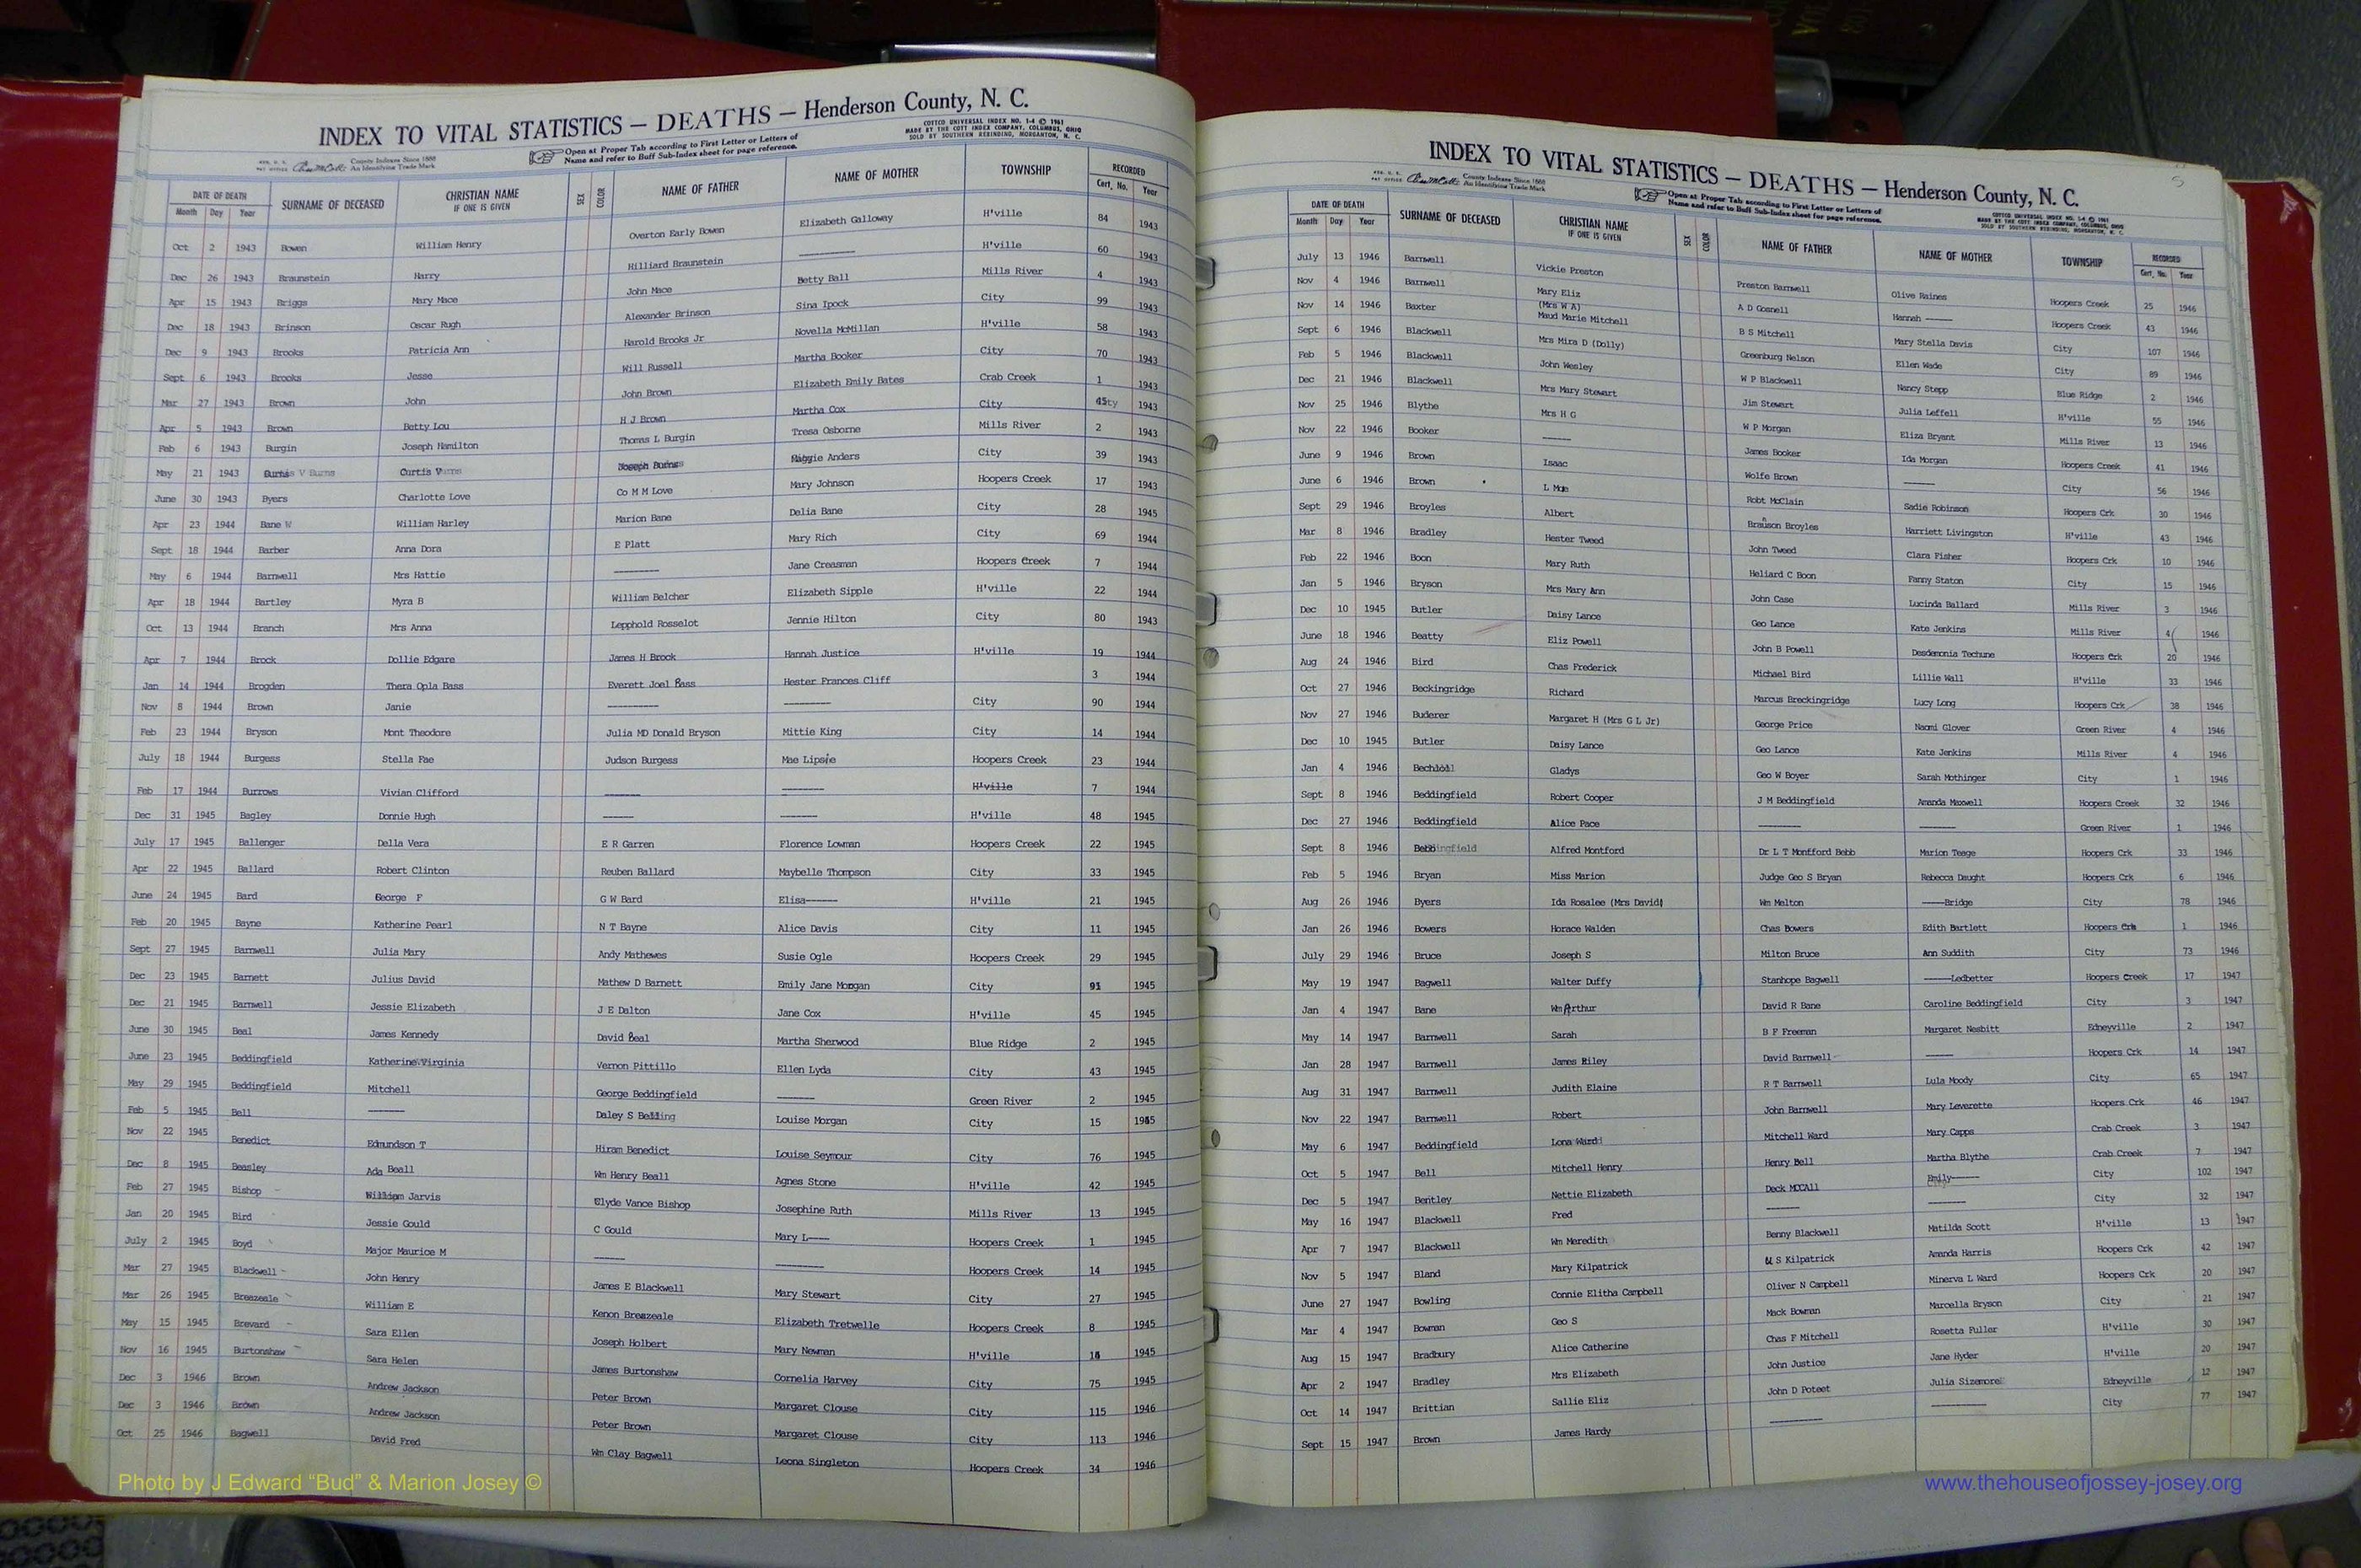 INDEX TO VITAL STATISTICS — DEATHS — Henderson County, N. C.
COTTCO UNIVERSAL INDEX NO. 1-4 © 1961
MADE BY THE COTT INDEX COMPANY, COLUMBUS, OHIO
SOLD BY SOUTHERN REBINDING, MORGANTON, N. C.
County Indexes Since 1888
An Identifying Trade Mark
Open at Proper Tab according to First Letter or Letters of
Name and refer to Buff Sub-Index sheet for page reference.
DATE OF DEATH SURNAME OF DECEASED CHRISTIAN NAME SEX COLOR NAME OF FATHER NAME OF MOTHER TOWNSHIP RECORDED
Month Day Year IF ONE IS GIVEN Cert. No. Year
Oct 2 1943 Bowen William Henry Overton Early Bowen Elizabeth Galloway H'ville 84 1943
Dec 26 1943 Braunstein Harry Hilliard Braunstein ---------- H'ville 60 1943
Apr 15 1943 Briggs Mary Mace John Mace Betty Ball Mills River 4 1943
Dec 18 1943 Brinson Oscar Rugh Alexander Brinson Sina Ipock City 99 1943
Dec 9 1943 Brooks Patricia Ann Harold Brooks Jr Novella McMillan H'ville 58 1943
Sept 6 1943 Brooks Jesse Will Russell Martha Booker City 70 1943
Mar 27 1943 Brown John John Brown Elizabeth Emily Bates Crab Creek 1 1943
Apr 5 1943 Brown Betty Lou H J Brown Martha Cox City 1943
Feb 6 1943 Burgin Joseph Hamilton Thomas L Burgin Tresa Osborne Mills River 2 1943
May 21 1943 Curtis Joseph Burns Anders City 39 1943
June 30 1943 Byers Charlotte Love Co M M Love Mary Johnson Hoopers Creek 17 1943
Apr 23 1944 Bane W William Harley Marion Bane Delia Bane City 28 1945
Sept 18 1944 Barber Anna Dora E Platt Mary Rich City 69 1944
May 6 1944 Barnwell Mrs Hattie --------- Jane Creasman Hoopers Creek 7 1944
Apr 18 1944 Bartley Myra B William Belcher Elizabeth Sipple H'ville 22 1944
Oct 13 1944 Branch Mrs Anna Lepphold Rosselot Jennie Hilton City 80 1943
Apr 7 1944 Brock Dollie Edgare James H Brock Hannah Justice H'ville 19 1944
Jan 14 1944 Brogden Thera Opla Bass Everett Joel Bass Hester Frances Cliff 3 1944
Nov 8 1944 Brown Janie ---------- --------- City 90 1944
Feb 23 1944 Bryson Mont Theodore Julia MD Donald Bryson Mittie King City 14 1944
July 18 1944 Burgess Stella Fae Judson Burgess Mae Lipsie Hoopers Creek 23 1944
Feb 17 1944 Burrows Vivian Clifford ------- -------- H'ville 7 1944
Dec 31 1945 Bagley Donnie Hugh ------ ------- H'ville 48 1945
July 17 1945 Ballenger Della Vera E R Garren Florence Lowman Hoopers Creek 22 1945
Apr 22 1945 Ballard Robert Clinton Reuben Ballard Maybelle Thompson City 33 1945
June 24 1945 Bard George F G W Bard Elisa------ H'ville 21 1945
Feb 20 1945 Bayne Katherine Pearl N T Bayne Alice Davis City 11 1945
Sept 27 1945 Barnwell Julia Mary Andy Mathewes Susie Ogle Hoopers Creek 29 1945
Dec 23 1945 Barnett Julius David Mathew D Barnett Emily Jane Morgan City 91 1945
Dec 21 1945 Barnwell Jessie Elizabeth J E Dalton Jane Cox H'ville 45 1945
June 30 1945 Beal James Kennedy David Beal Martha Sherwood Blue Ridge 2 1945
June 23 1945 Beddingfield Katherine Virginia Vernon Pittillo Ellen Lyda City 43 1945
May 29 1945 Beddingfield Mitchell George Beddingfield ------- Green River 2 1945
Feb 5 1945 Bell ------- Daley S Louise Morgan City 15 1945
Nov 22 1945 Benedict Edmundson T Hiram Benedict Louise Seymour City 76 1945
Dec 8 1945 Beasley Ada Beall Wm Henry Beall Agnes Stone H'ville 42 1945
Feb 27 1945 Bishop William Jarvis Clyde Vance Bishop Josephine Ruth Mills River 13 1945
Jan 20 1945 Bird Jessie Gould C Gould Mary L---- Hoopers Creek 1 1945
July 2 1945 Boyd Major Maurice M ------ --------- Hoopers Creek 14 1945
Mar 27 1945 Blackwell John Henry James E Blackwell Mary Stewart City 27 1945
Mar 26 1945 Breazeale William E Kenon Breazeale Elizabeth Tretwelle Hoopers Creek 8 1945
May 15 1945 Brevard Sara Ellen Joseph Holbert Mary Newman H'ville 1945
Nov 16 1945 Burtonshaw Sara Helen James Burtonshaw Cornelia Harvey City 75 1945
Dec 3 1946 Brown Andrew Jackson Peter Brown Margaret Clouse City 115 1946
Dec 3 1946 Brown Andrew Jackson Peter Brown Margaret Clouse City 113 1946
Oct 25 1946 Bagwell David Fred Wm Clay Bagwell Leona Singleton Hoopers Creek 34 1946
Photo by J Edward “Bud” & Marion Josey ©
5
INDEX TO VITAL STATISTICS — DEATHS — Henderson County, N. C.
County Indexes Since 1888
An Identifying Trade Mark
Open at Proper Tab according to First Letter or Letters of
Name and refer to Buff Sub-Index sheet for page reference.
COTTCO UNIVERSAL INDEX NO. 1-4 © 1961
MADE BY THE COTT INDEX COMPANY, COLUMBUS, OHIO
SOLD BY SOUTHERN REBINDING, MORGANTON, N. C.
DATE OF DEATH SURNAME OF DECEASED CHRISTIAN NAME SEX COLOR NAME OF FATHER NAME OF MOTHER TOWNSHIP RECORDED
Month Day Year IF ONE IS GIVEN Cert. No. Year
July 13 1946 Barnwell Vickie Preston Preston Barnwell Olive Raines Hoopers Creek 25 1946
Nov 4 1946 Barnwell Mary Eliz A D Gosnell Hannah ----- Hoopers Creek 43 1946
(Mrs W A)
Nov 14 1946 Baxter Maud Marie Mitchell B S Mitchell Mary Stella Davis City 107 1946
Sept 6 1946 Blackwell Mrs Mira D (Dolly) Greenburg Nelson Ellen Wade City 89 1946
Feb 5 1946 Blackwell John Wesley W P Blackwell Nancy Stepp Blue Ridge 2 1946
Dec 21 1946 Blackwell Mrs Mary Stewart Jim Stewart Julia Leffell H'ville 55 1946
Nov 25 1946 Blythe Mrs H G W P Morgan Eliza Bryant Mills River 13 1946
Nov 22 1946 Booker ------ James Booker Ida Morgan Hoopers Creek 41 1946
June 9 1946 Brown Isaac Wolfe Brown ------ City 56 1946
June 6 1946 Brown L Mae Robt McClain Sadie Robinson Hoopers Crk 30 1946
Sept 29 1946 Broyles Albert Broyles Harriett Livingston H'ville 43 1946
Mar 8 1946 Bradley Hester Tweed John Tweed Clara Fisher Hoopers Crk 10 1946
Feb 22 1946 Boon Mary Ruth Heliard C Boon Fanny Staton City 15 1946
Jan 5 1946 Bryson Mrs Mary Ann John Case Lucinda Ballard Mills River 3 1946
Dec 10 1945 Butler Daisy Lance Geo Lance Kate Jenkins Mills River 4 1946
June 18 1946 Beatty Eliz Powell John B Powell Desdemonia Techune Hoopers Crk 20 1946
Aug 24 1946 Bird Chas Frederick Michael Bird Lillie Wall H'ville 33 1946
Oct 27 1946 Beckingridge Richard Marcus Breckingridge Lucy Long Hoopers Crk 38 1946
Nov 27 1946 Buderer Margaret H (Mrs G L Jr) George Price Naomi Glover Green River 4 1946
Dec 10 1945 Butler Daisy Lance Geo Lance Kate Jenkins Mills River 4 1946
Jan 4 1946 Gladys Geo W Boyer Sarah Mothinger City 1 1946
Sept 8 1946 Beddingfield Robert Cooper J M Beddingfield Amanda Maxwell Hoopers Creek 32 1946
Dec 27 1946 Beddingfield Alice Pace -------- ------- Green River 1 1946
Sept 8 1946 Alfred Montford Dr L T Montfford Bebb Marion Teage Hoopers Crk 33 1946
Feb 5 1946 Bryan Miss Marion Judge Geo S Bryan Rebecca Daught Hoopers Crk 6 1946
Aug 26 1946 Byers Ida Rosalee (Mrs David) Wm Melton -----Bridge City 78 1946
Jan 26 1946 Bowers Horace Walden Chas Bowers Edith Bartlett Hoopers Crk 1 1946
July 29 1946 Bruce Joseph S Milton Bruce Ann Suddith City 73 1946
May 19 1947 Bagwell Walter Duffy Stanhope Bagwell ------Ledbetter Hoopers Creek 17 1947
Jan 4 1947 Bane Wm Arthur David R Bane Caroline Beddingfield City 3 1947
May 14 1947 Barnwell Sarah B F Freeman Margaret Nesbitt Edneyville 2 1947
Jan 28 1947 Barnwell James Riley David Barnwell ----- Hoopers Crk 14 1947
Aug 31 1947 Barnwell Judith Elaine R T Barnwell Lula Moody City 65 1947
Nov 22 1947 Barnwell Robert John Barnwell Mary Leverette Hoopers Crk 46 1947
May 6 1947 Beddingfield Lona Ward Mitchell Ward Mary Capps Crab Creek 3 1947
Oct 5 1947 Bell Mitchell Henry Henry Bell Martha Blythe Crab Creek 7 1947
Dec 5 1947 Bentley Nettie Elizabeth Deck MCCAll Emily----- City 102 1947
May 16 1947 Blackwell Fred ------ ------- City 32 1947
Apr 7 1947 Blackwell Wm Meredith Benny Blackwell Matilda Scott H'ville 13 1947
Nov 5 1947 Bland Mary Kilpatrick S Kilpatrick Amanda Harris Hoopers Crk 42 1947
June 27 1947 Bowling Connie Elitha Campbell Oliver N Campbell Minerva L Ward Hoopers Crk 20 1947
Mar 4 1947 Bowman Geo S Mack Bowman Marcella Bryson City 21 1947
Aug 15 1947 Bradbury Alice Catherine Chas F Mitchell Rosetta Fuller H'ville 30 1947
Apr 2 1947 Bradley Mrs Elizabeth John Justice Jane Hyder H'ville 20 1947
Oct 14 1947 Brittian Sallie Eliz John D Poteet Julia Sizemore Edneyville 12 1947
Sept 15 1947 Brown James Hardy --------- --------- City 77 1947
www.thehouseofjossey-josey.org